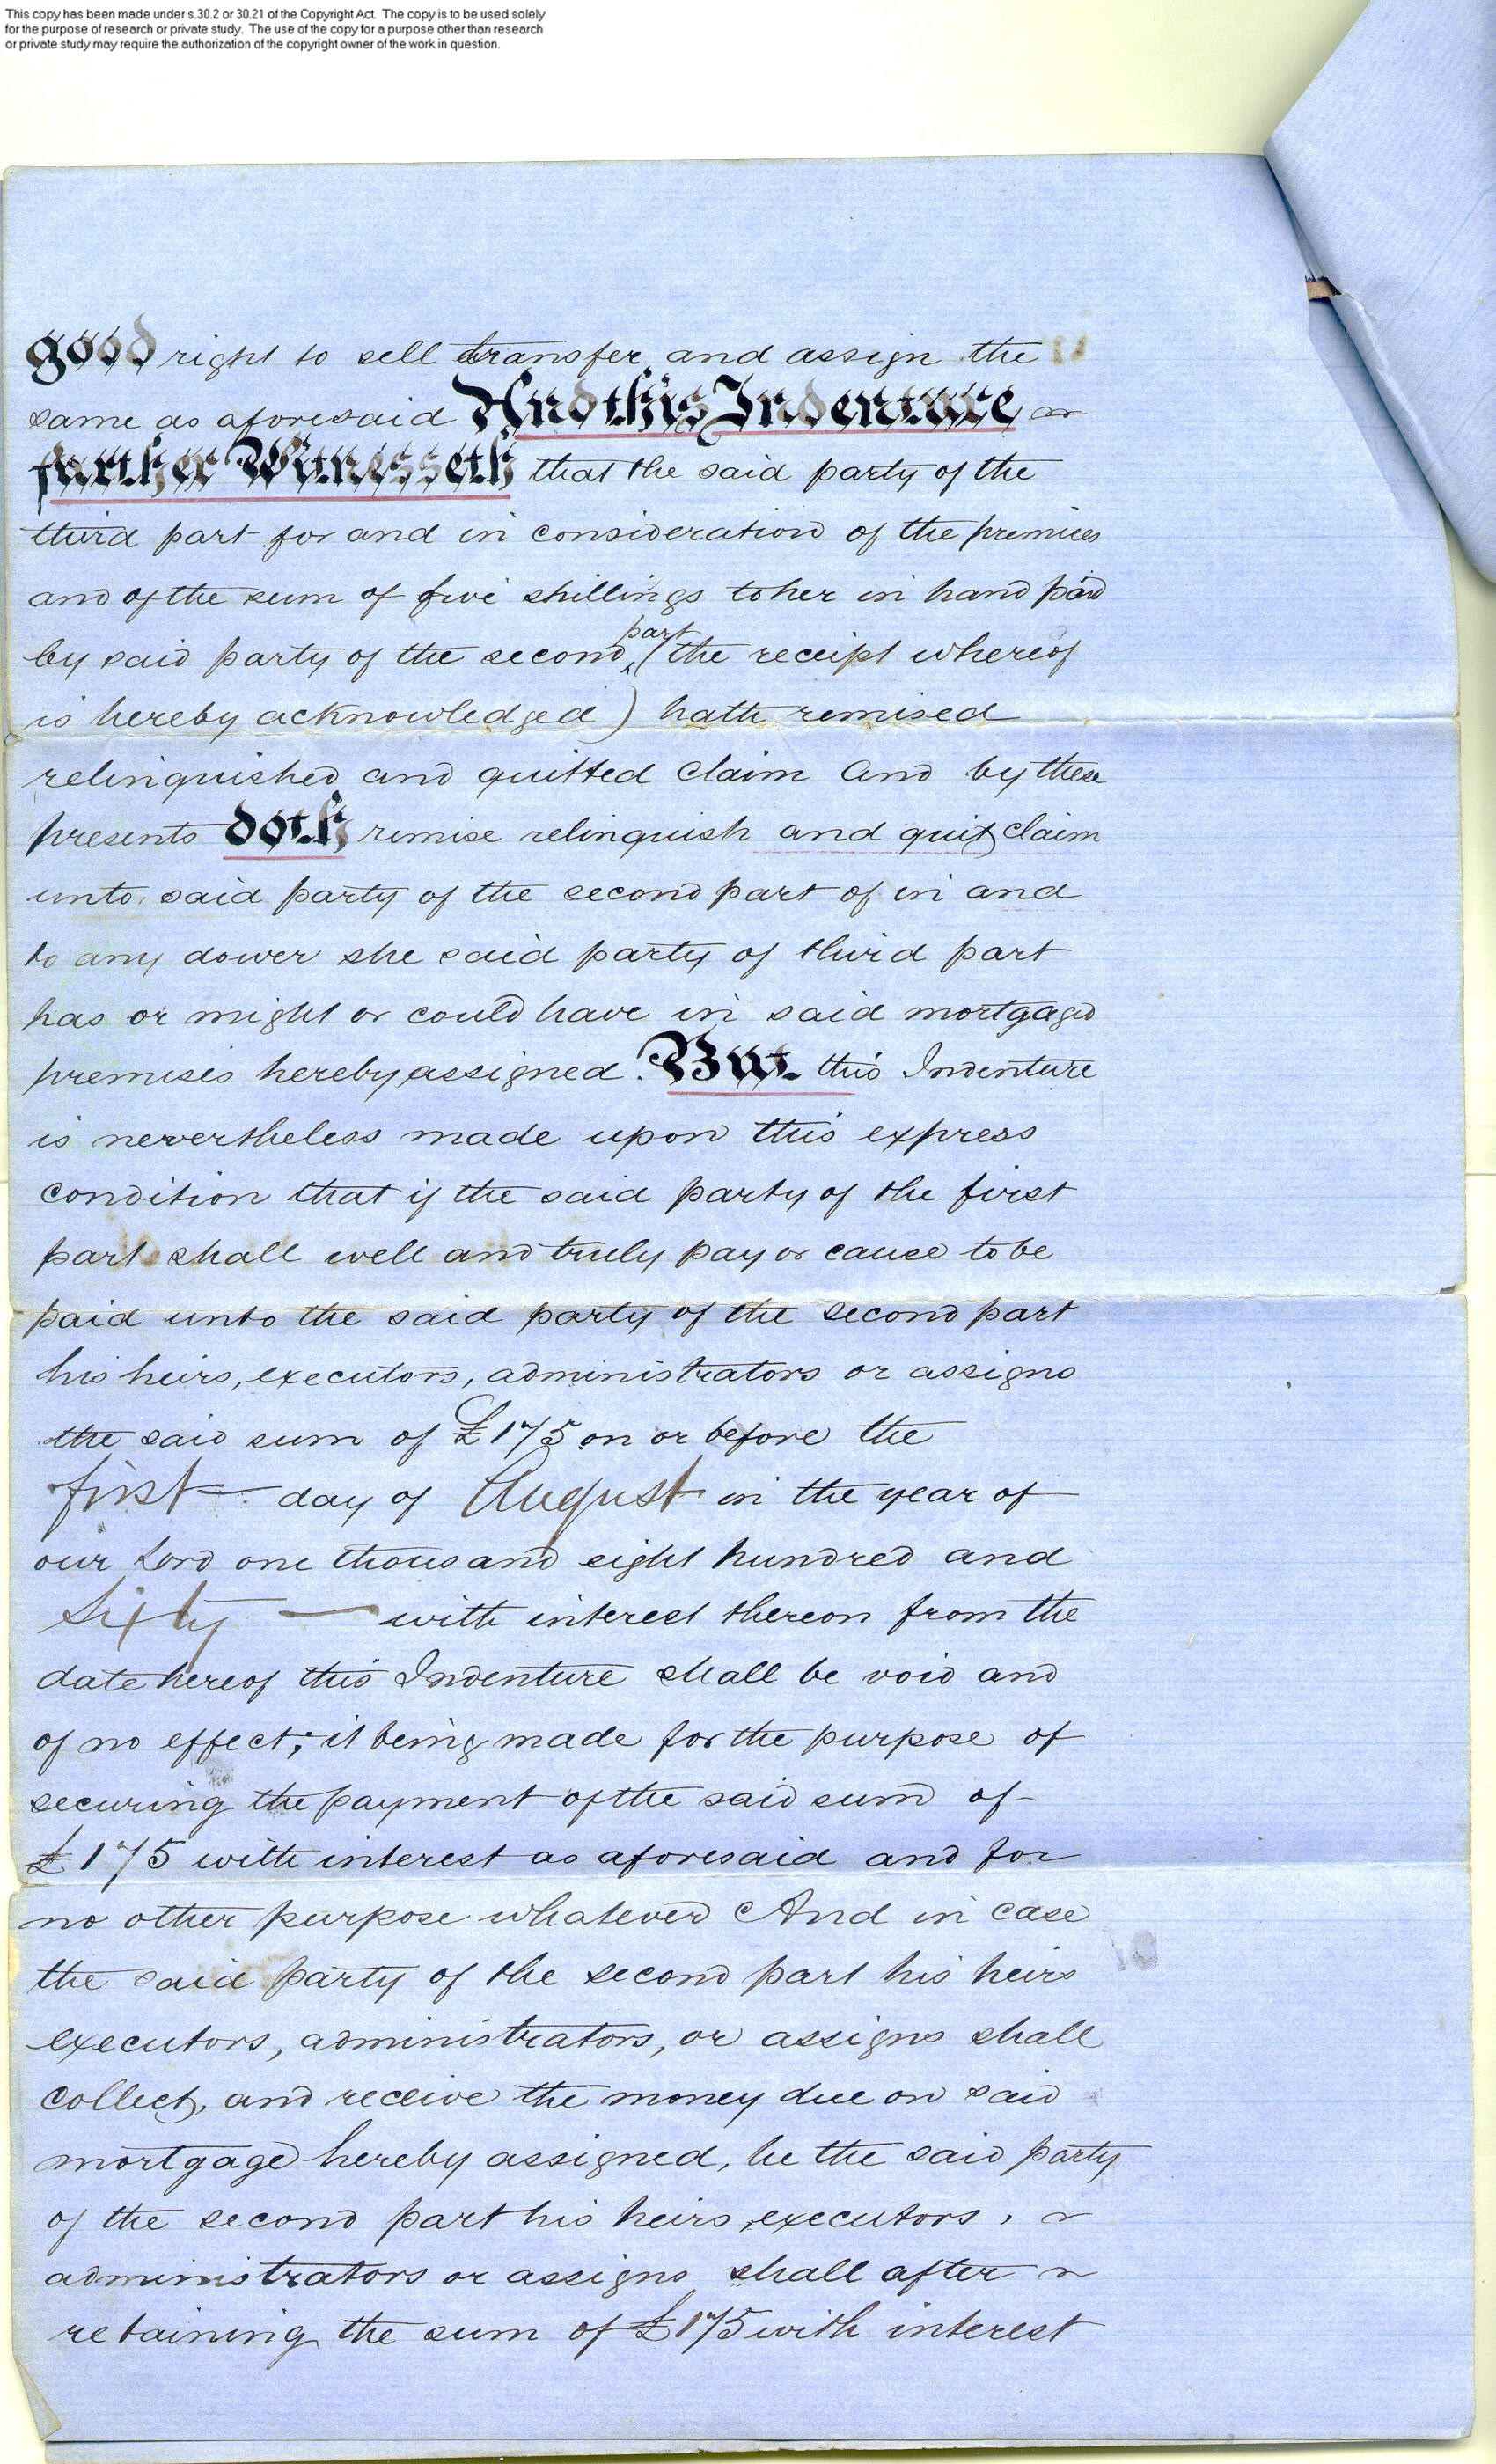 This copy has been made under s.30.2 or 30.21 of the Copyright Act. The copy is to be used solely
for the purpose of research or private study. The use of the copy for a purpose other than research
or private study may require the authorization of the copyright owner of the work in question.
good right to sell transfer and assign the
same as aforesaid And this Indenture
further Witnesseth that the said party of the
third part for and in consideration of the premises
and of the sum of five shillings to her in hand paid
by said party of the second part (the receipt whereof
is hereby acknowledged) hath remised
relinquished and quitted claim and by these
presents doth remise relinquish and quit claim
unto said party of the second part of in and
to any dower she said party of third part
has or might or could have in said mortgaged
premises hereby assigned. But this Indenture
is nevertheless made upon this express
condition that if the said party of the first
part shall well and truly pay or cause to be
paid unto the said party of the second part
his heirs, executors, administrators or assigns
the said sum of £175 on or before the
first day of August in the year of
our Lord one thousand eight hundred and
Sixty — with interest thereon from the
date hereof this Indenture shall be void and
of no effect; it being made for the purpose of
securing the payment of the said sum of
£175 with interest as aforesaid and for
no other purpose whatever And in case
the said party of the second part his heirs
executors, administrators, or assigns shall
collect, and receive the money due on said
mortgage hereby assigned, he the said party
of the second part his heirs, executors,
administrators or assigns shall after
retaining the sum of £175 with interest